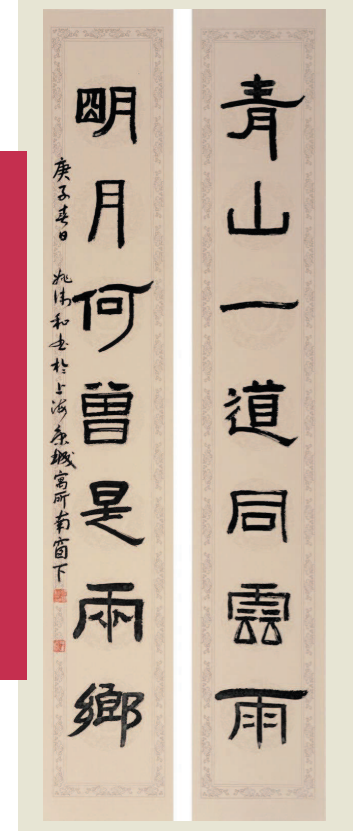 青山一道同雲雨
明月何曾是兩鄉
庚子春日 姚 和书於上海康城寓所南窗下